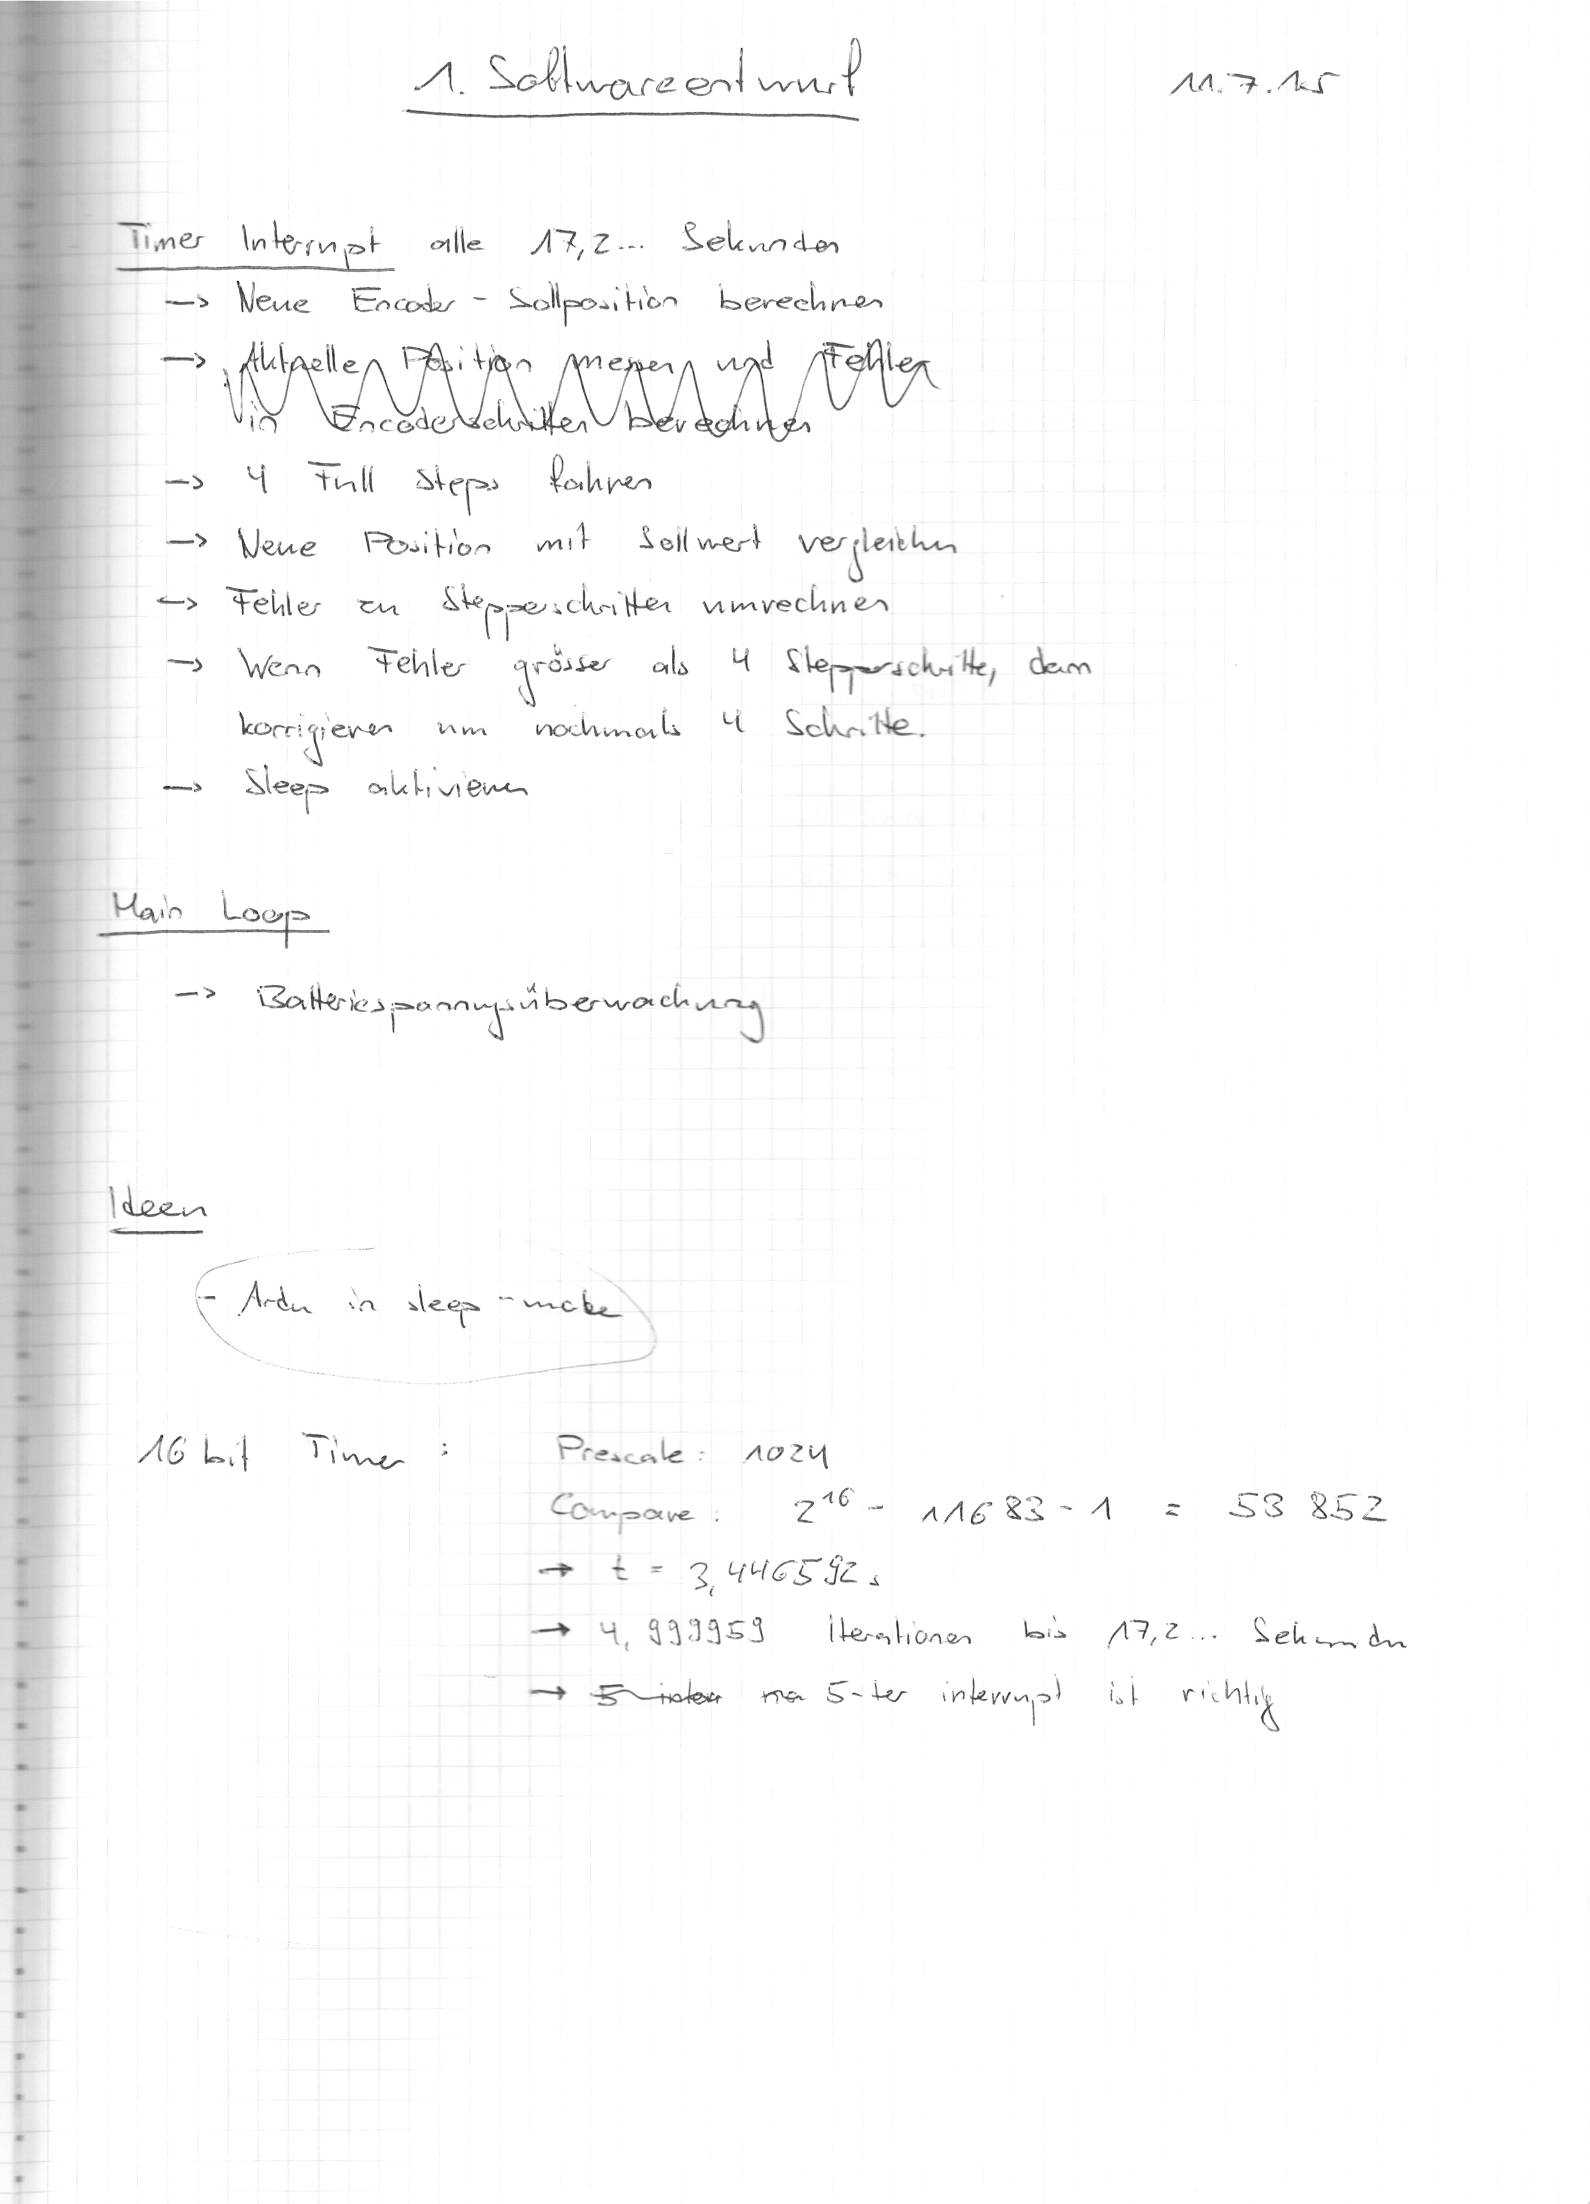 1. Softwareentwurf 11.7.15
Timer Interrupt alle 17,2... Sekunden
-> Neue Encoder - Sollposition berechnen
-> Aktuellen Position messen und Fehler
in Encoderschritten berechnen
-> 4 Full Steps fahren
-> Neue Position mit Sollwert vergleichen
-> Fehler zu Stepperschritten umrechnen
-> Wenn Fehler grösser als 4 Stepperschritte, dann
korrigieren um nochmals 4 Schritte.
-> Sleep aktivieren
Main Loop
-> Batteriespannungsüberwachung
Ideen
- Ardu in sleep-mode
16 bit Timer : Prescale: 1024
Compare: 2^16 - 11683 - 1 = 53 852
→ t = 3,446592 s
→ 4,999959 iterationen bis 17,2... Sekunden
→ 5-ter interrupt ist richtig